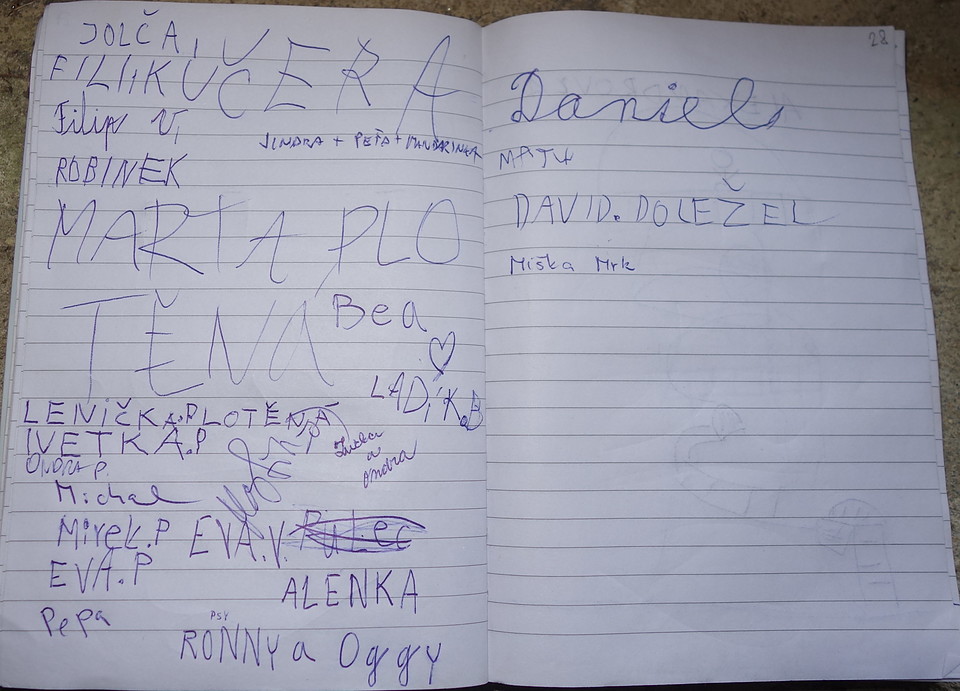 JOLČA,
FILIIK UČERA
Filip V,
JINDRA + PEŤA + MANDARINKA
ROBINEK
MARTA PLO
TĚNÁ
Bea
LADÍK.B
LENIČKA.PLOTĚNÁ
IVETKA.P
ONDRA P.
a
Ondra
Michal
Mirek.P
EVA.V.
EVA.P
ALENKA
Pepa
PSY
RONNY a Oggy
28
Daniel
DAVID.DOLEŽEL
Miška Mrk